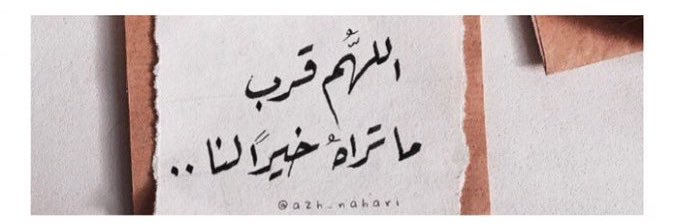 اللهُّم قرب
ما تراهُ خيرًا لنا ..
@azh_nahari